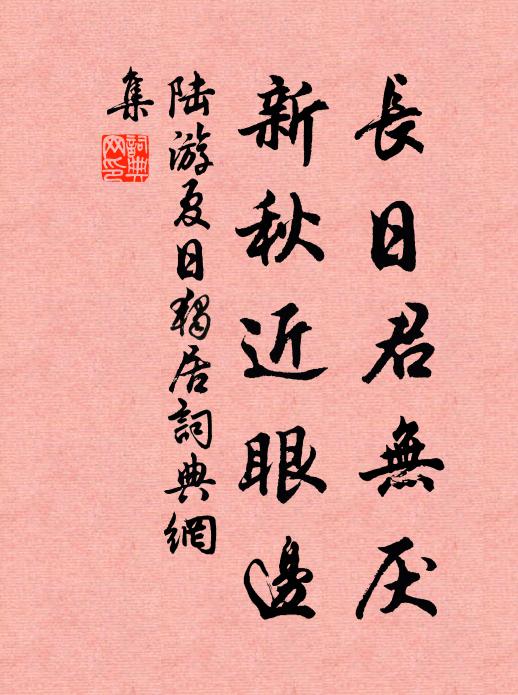 長日君無厌
新秋近眼邊
陆游夏日獨居詞典網
集
詞典
网印